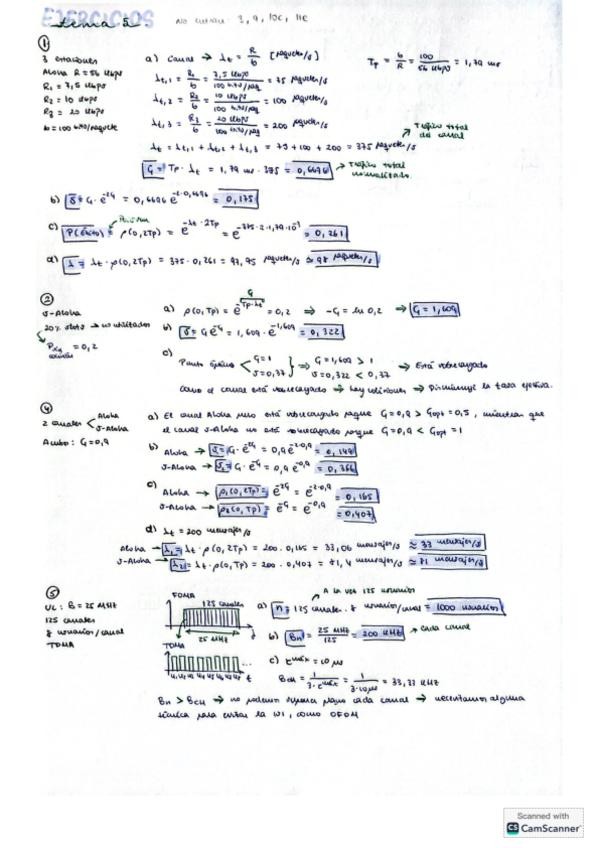 EJERCICIOS
tema 5.
No entran: 3, 9, 10c, 11c
①
3 estaciones
Aloha R = 56 kbps
R₁ = 7,5 kbps
R₂ = 10 kbps
R₃ = 20 kbps
b = 100 bits/paquete
a) Canal → λt = R/b [paquetes/s]
Tp = b/R = 100/56 kbps = 1,79 ms
λt,1 = R₁/b = 7,5 kbps/100 bits/paq = 75 paquetes/s
λt,2 = R₂/b = 10 kbps/100 bits/paq = 100 paquetes/s
λt,3 = R₃/b = 20 kbps/100 bits/paq = 200 paquetes/s
λt = λt,1 + λt,2 + λt,3 = 75 + 100 + 200 = 375 paquetes/s → Tráfico total del canal
G = Tp · λt = 1,79 ms · 375 = 0,6696 → Tráfico total normalizado.
b) S = G · e^-2G = 0,6696 e^-2·0,6696 = 0,175
Poisson
c) P(éxito) = p(0,2Tp) = e^-λt·2Tp = e^-375·2·1,79·10⁻³ = 0,261
d) λ = λt · p(0,2Tp) = 375 · 0,261 = 97,95 paquetes/s ≈ 98 paquetes/s
②
S-Aloha
20% slots → no utilizados
= 0,2
a) p(0,Tp) = e^-Tp·λt = 0,2 ⇒ -G = ln 0,2 → G = 1,609
b) S = G e^-G = 1,609 · e^-1,609 = 0,322
c) Punto óptimo G = 1 S = 0,37 → G = 1,609 > 1 S = 0,322 < 0,37 → Está sobrecargado
Como el canal está sobrecargado → hay colisiones → Disminuye la tasa efectiva.
④
2 canales Aloha S-Aloha
Ambos: G = 0,9
a) El canal Aloha puro está sobrecargado porque G = 0,9 > Gopt = 0,5, mientras que
el canal S-Aloha no está sobrecargado porque G = 0,9 < Gopt = 1
b) Aloha → S₁ = G · e^-2G = 0,9 e^-2·0,9 = 0,149
S-Aloha → S₂ = G · e^-G = 0,9 e^-0,9 = 0,366
c) Aloha → p₁(0,2Tp) = e^-2G = e^-2·0,9 = 0,165
S-Aloha → p₂(0,Tp) = e^-G = e^-0,9 = 0,407
d) λt = 200 mensajes/s
Aloha → λ₁ = λt · p(0,2Tp) = 200 · 0,165 = 33,06 mensajes/s ≈ 33 mensajes/s
S-Aloha → λ₂ = λt · p(0,Tp) = 200 · 0,407 = 81,4 mensajes/s ≈ 81 mensajes/s
⑤
UL: B = 25 MHz
125 canales
8 usuarios/canal
TDMA
FDMA
125 canales
25 MHz
TDMA
A la vez 125 usuarios
a) n = 125 canales · 8 usuarios/canal = 1000 usuarios
b) Bn = 25 MHz/125 = 200 KHz → cada canal
c) τmáx = 10 μs
BCH = 1/3·τmáx = 1/3·10μs = 33,33 KHz
Bn > BCH → no podemos suponer plano cada canal → necesitamos alguna
técnica para evitar la ISI, como OFDM
Scanned with
CS CamScanner